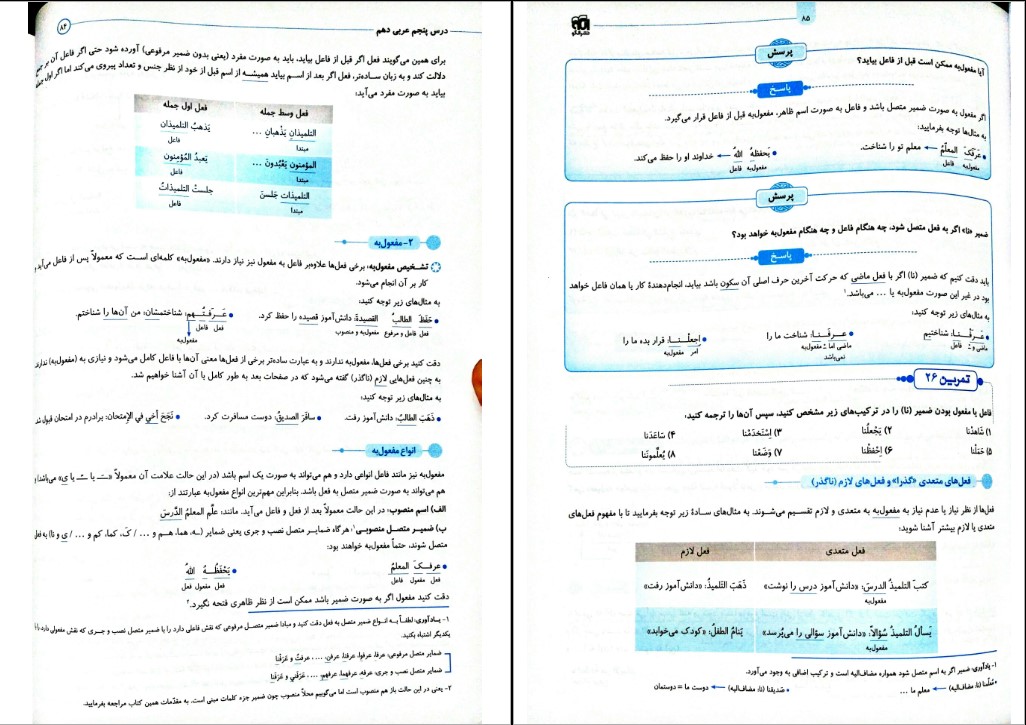 درس پنجم عربی دهم
۸۴
برای همین می‌گویند فعل اگر قبل از فاعل بیاید، باید به صورت مفرد (یعنی بدون ضمیر مرفوعی) آورده شود حتی اگر فاعل آن بر جمع
دلالت کند و به زبان ساده‌تر، فعل اگر بعد از اسم بیاید همیشه از اسم قبل از خود از نظر جنس و تعداد پیروی می‌کند اما اگر اول جمله
بیاید به صورت مفرد می‌آید:
فعل وسط جمله فعل اول جمله
التلمیذانِ یَذْهبانِ ... یَذهبُ التلمیذان
مبتدا فاعل
المؤمنون یَعْبُدونَ ... یَعبدُ المُؤمنون
مبتدا فاعل
التلمیذات جَلسنَ جلستُ التلمیذاتُ
مبتدا فاعل
۲- مفعول‌به
تشخیص مفعول‌به: برخی فعل‌ها علاوه‌بر فاعل به مفعول نیز نیاز دارند. «مفعول‌به» کلمه‌ای است که معمولاً پس از فاعل می‌آید و
کار بر آن انجام می‌شود.
به مثال‌های زیر توجه کنید:
حَفَظَ الطالبُ القصیدةَ دانش‌آموز قصیده را حفظ کرد. عَـرفـتُـهم: شناختمشان: من آن‌ها را شناختم.
فعل فاعل و مرفوع مفعول‌به و منصوب فعل فاعل
مفعول‌به
دقت کنید برخی فعل‌ها، مفعول‌به ندارند و به عبارت ساده‌تر برخی از فعل‌ها معنی آن‌ها با فاعل کامل می‌شود و نیازی به (مفعول‌به) ندارند
به چنین فعل‌هایی لازم (ناگذر) گفته می‌شود که در صفحات بعد به طور کامل با آن آشنا خواهیم شد.
به مثال‌های زیر توجه کنید:
ذَهَبَ الطالبُ: دانش‌آموز رفت. سافَرَ الصدیقُ: دوست مسافرت کرد. نَجَحَ أخي في الإمتحان: برادرم در امتحان قبول شد
انواع مفعول‌به
مفعول‌به نیز مانند فاعل انواعی دارد و هم می‌تواند به صورت یک اسم باشد (در این حالت علامت آن معمولاً
هم می‌تواند به صورت ضمیر متصل به فعل باشد. بنابراین مهم‌ترین انواع مفعول‌به عبارتند از:
الف) اسم منصوب: در این حالت معمولاً بعد از فعل و فاعل می‌آید. مانند: علّم المعلمُ الدَّرسَ
ب) ضمیـر متصـل منصوبـی۱: هرگاه ضمایـر متصل نصب و جری یعنی ضمایر (ـه، هما، هـم و ... / کَ، کما، کم و ... / ي و نا) به فعل
متصل شوند، حتماً مفعول‌به خواهند بود:
عرفـکَ المعلمُ یَحْفَظُـهُ اللهُ
فعل مفعول فاعل فعل مفعول فعل
دقت کنید مفعول اگر به صورت ضمیر باشد ممکن است از نظر ظاهری فتحه نگیرد.۲
۱- یـادآوری: لطفـاً بـه انـواع ضمیر متصل به فعل دقت کنید و مبادا ضمیر متصـل مرفوعی که نقش فاعلی دارد را با ضمیر متصل نصب و جـری که نقش مفعولی دارد با
یکدیگر اشتباه بکنید.
ضمایر متصل مرفوعی: عرفا، عرفوا، عرفتا، عرفن، .... عرفتُ و عَرَفْنا
ضمایر متصل نصب و جری: عرفه، عرفهما، عرفهم، .... عَرَفَني و عَرَفَنا
۲- یعنی در این حالت باز هم منصوب است اما می‌گوییم محلاً منصوب چون ضمیر جزء کلمات مبنی است. به مقدّمات همین کتاب مراجعه بفرمایید.
۸۵
پرسش
آیا مفعول‌به ممکن است قبل از فاعل بیاید؟
پاسخ
اگر مفعول‌به به صورت ضمیر متصل باشد و فاعل به صورت اسم ظاهر، مفعول‌به قبل از فاعل قرار می‌گیرد.
به مثال‌ها توجه بفرمایید:
عَرَفَکَ المعلّمُ ← معلم تو را شناخت. یَحفظهُ اللهُ ← خداوند او را حفظ می‌کند.
مفعول‌به فاعل مفعول‌به فاعل
پرسش
ضمیر «نا» اگر به فعل متصل شود، چه هنگام فاعل و چه هنگام مفعول‌به خواهد بود؟
پاسخ
باید دقت کنیم که ضمیر (نا) اگر با فعل ماضی که حرکت آخرین حرف اصلی آن سکون باشد بیاید، انجام‌دهندهٔ کار یا همان فاعل خواهد
بود در غیر این صورت مفعول‌به یا ... می‌باشد.۱
به مثال‌های زیر توجه کنید:
عَـرفْـنـا: شناختیم عـرفَـنـا: شناخت ما را اجعلْـنـا: قرار بده ما را
ماضی و ـْ فاعل ماضی اما ـْ مفعول‌به امر مفعول‌به
نمی‌باشد
تمرین ۲۶
فاعل یا مفعول بودن ضمیر (نا) را در ترکیب‌های زیر مشخص کنید، سپس آن‌ها را ترجمه کنید:
۱) شاهَدْنا ۲) یَجْعلُنا ۳) اِسْتَخدَمْنا ۴) ساعَدَنا
۵) حَمَلْنا ۶) اِحْفَظْنا ۷) وَضَعْنا ۸) یُعلّمونَنا
فعل‌های متعدی «گذرا» و فعل‌های لازم (ناگذر)
فعل‌ها از نظر نیاز یا عدم نیاز به مفعول‌به به متعدی و لازم تقسیم می‌شوند. به مثال‌های سادهٔ زیر توجه بفرمایید تا با مفهوم فعل‌های
متعدی یا لازم بیشتر آشنا شوید:
فعل متعدی فعل لازم
کتبَ التلمیذُ الدرسَ: «دانش‌آموز درس را نوشت» ذَهَبَ التّلمیذُ: «دانش‌آموز رفت»
مفعول‌به
یَسألُ التلمیذُ سُؤالاً: «دانش‌آموز سؤالی را می‌پُرسد» یَنامُ الطفلُ: «کودک می‌خوابد»
مفعول‌به
۱- یادآوری: ضمیر اگر به اسم متصل شود همواره مضاف‌الیه است و ترکیب اضافی به وجود می‌آورد.
مُعلّمنا (نا: مضاف‌الیه) ← معلم ما ... صَدیقنا (نا: مضاف‌الیه) ← دوست ما = دوستمان